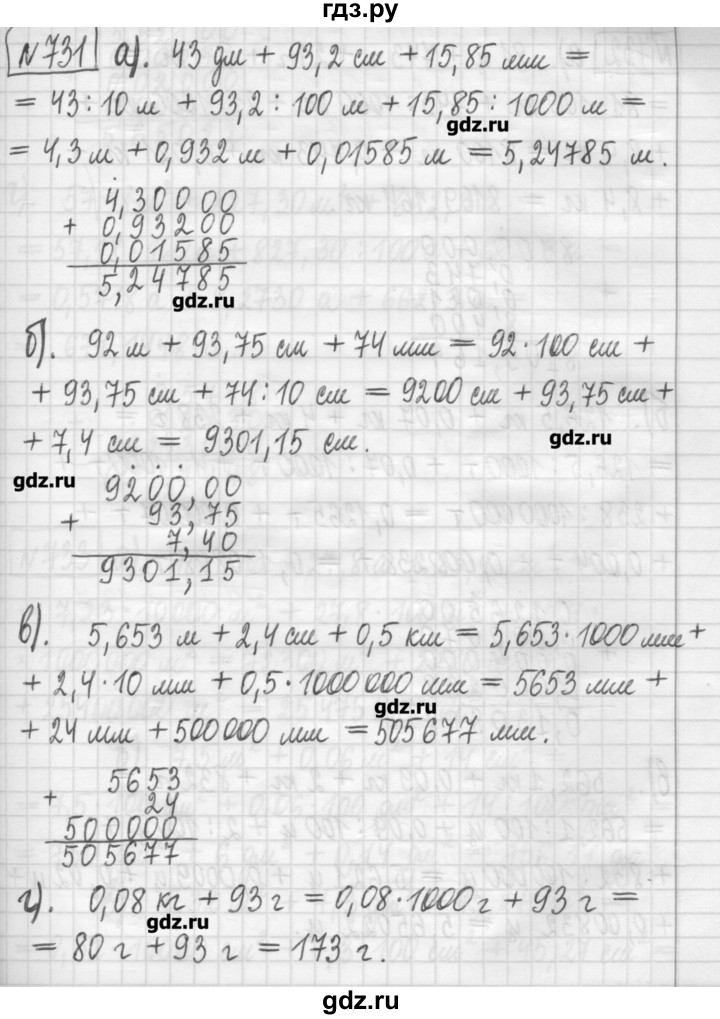 гдз.ру
№731 а). 43 дм + 93,2 см + 15,85 мм =
= 43:10 м + 93,2:100 м + 15,85:1000 м =
gdz.ru
= 4,3 м + 0,932 м + 0,01585 м = 5,24785 м.
4,30000
+ 0,93200
0,01585
5,24785
gdz.ru
б). 92 м + 93,75 см + 74 мм = 92·100 см +
+ 93,75 см + 74:10 см = 9200 см + 93,75 см +
+ 7,4 см = 9301,15 см.
gdz.ru
gdz.ru
9200,00
+ 93,75
7,40
9301,15
в). 5,653 м + 2,4 см + 0,5 км = 5,653·1000 мм +
+ 2,4·10 мм + 0,5·1000000 мм = 5653 мм +
gdz.ru
+ 24 мм + 500000 мм = 505677 мм.
5653
+ 24
500000
505677
г). 0,08 кг + 93 г = 0,08·1000 г + 93 г =
gdz.ru
= 80 г + 93 г = 173 г.
gdz.ru